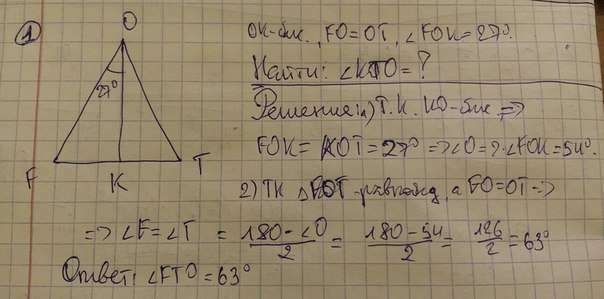 1
О
ОК-бис., FO=ОТ, ∠FOK=27°.
27°
Найти: ∠KTO=?
Решение: 1) Т.к. КО-бис =>
FOK= KOT=27° =>∠O=2·∠FOK=54°.
F
K
T
2) ТК △FOT-равнобед, а FO=OT=>
=> ∠F=∠T = 180-∠O/2 = 180-54/2 = 126/2 =63°
Ответ: ∠FTO=63°